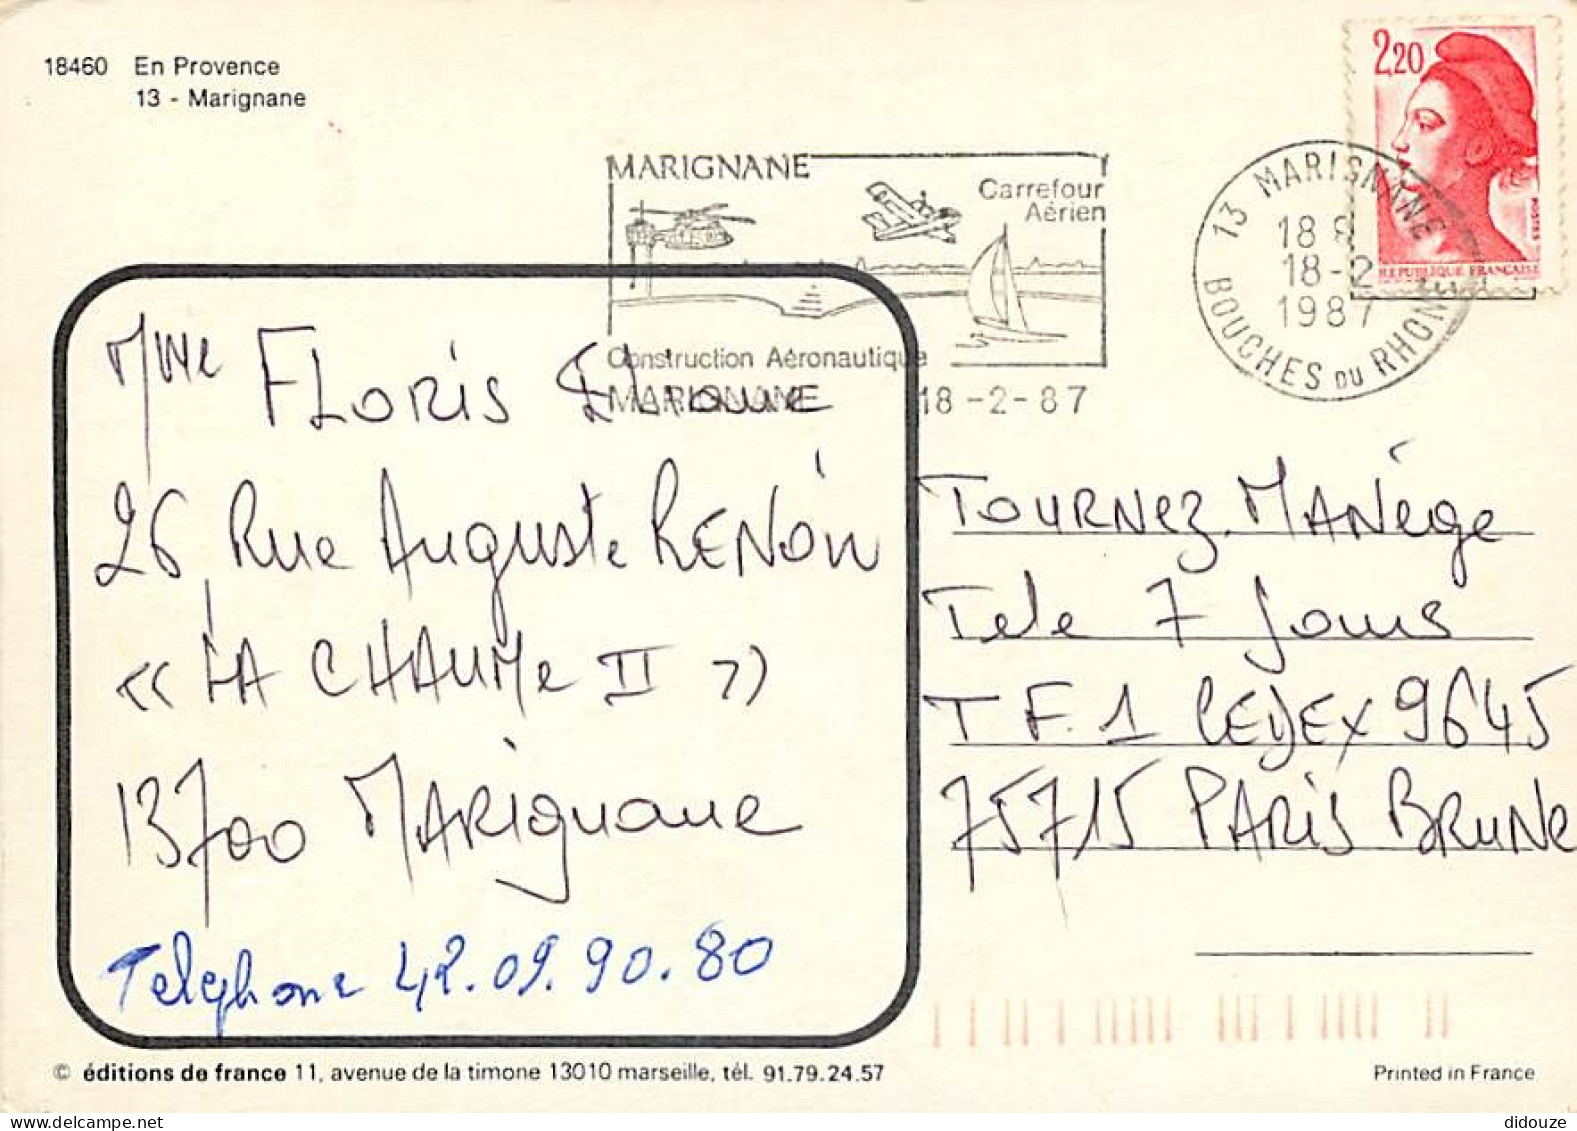 18460 En Provence
13 - Marignane
2,20
POSTES
REPUBLIQUE FRANÇAISE
MARIGNANE
Carrefour
Aérien
Construction Aéronautique
MARIGNANE 18-2-87
13 MARIGNANE
18-2
1987
BOUCHES DU RHONE
Mme FLORIS
26 Rue Auguste RENOIR
« LA CHAUME II »
13700 MARIGNANE
Telephone 42.09.90.80
TOURNEZ MANÈGE
Tele 7 Jours
T F.1 CEDEX 9645
75715 PARIS BRUNE
© éditions de france 11, avenue de la timone 13010 marseille, tél. 91.79.24.57
Printed in France
didouze